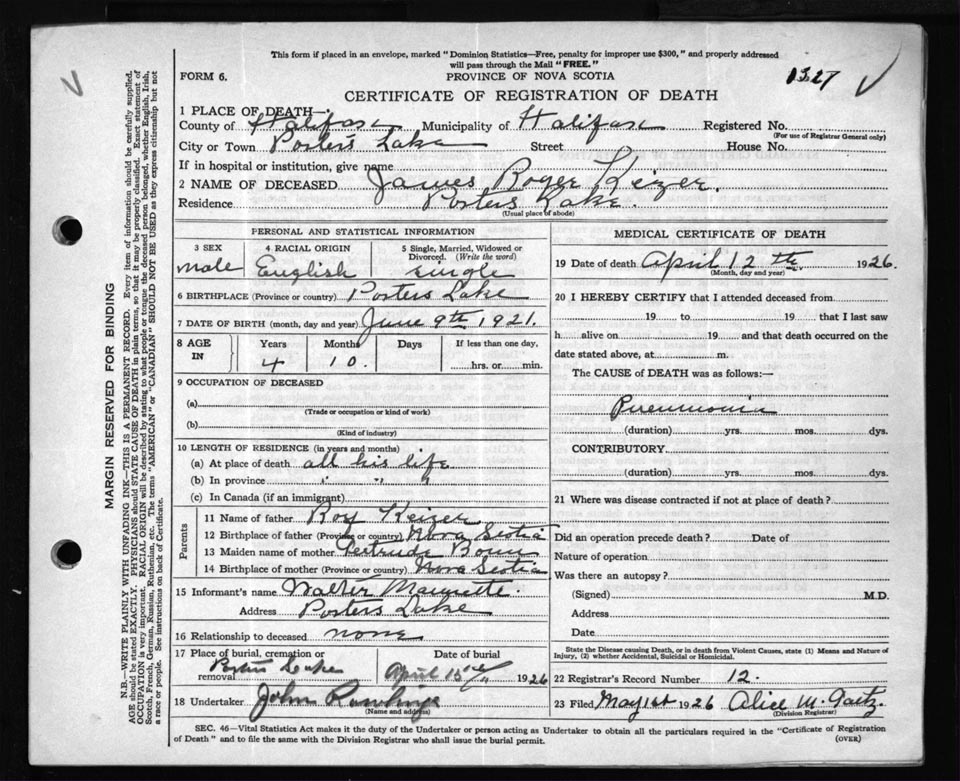 This form if placed in an envelope, marked "Dominion Statistics—Free, penalty for improper use $300," and properly addressed
will pass through the Mail "FREE."
FORM 6.
PROVINCE OF NOVA SCOTIA
1327
CERTIFICATE OF REGISTRATION OF DEATH
1 PLACE OF DEATH—
County of Halifax Municipality of Halifax Registered No.
(For use of Registrar General only)
City or Town Porters Lake Street House No.
If in hospital or institution, give name
2 NAME OF DECEASED James Roger Keizer.
Residence Porters Lake.
(Usual place of abode)
PERSONAL AND STATISTICAL INFORMATION
3 SEX 4 RACIAL ORIGIN 5 Single, Married, Widowed or Divorced. (Write the word)
male English single
6 BIRTHPLACE (Province or country) Porters Lake
7 DATE OF BIRTH (month, day and year) June 9th 1921.
8 AGE IN Years Months Days If less than one day,
4 10. hrs. or min.
9 OCCUPATION OF DECEASED
(a)
(Trade or occupation or kind of work)
(b)
(Kind of industry)
10 LENGTH OF RESIDENCE (in years and months)
(a) At place of death all his life
(b) In province " " "
(c) In Canada (if an immigrant)
Parents
11 Name of father Roy Keizer
12 Birthplace of father (Province or country) Nova Scotia
13 Maiden name of mother Gertrude
14 Birthplace of mother (Province or country) Nova Scotia
15 Informant's name Walter
Address Porters Lake
16 Relationship to deceased none
17 Place of burial, cremation or removal Porters Lake
Date of burial April 15th 1926
18 Undertaker John
(Name and address)
MEDICAL CERTIFICATE OF DEATH
19 Date of death April 12th 1926.
(Month, day and year)
20 I HEREBY CERTIFY that I attended deceased from
19 to 19 that I last saw
h alive on 19 and that death occurred on the
date stated above, at m.
The CAUSE of DEATH was as follows:—
Pneumonia
(duration) yrs. mos. dys.
CONTRIBUTORY
(duration) yrs. mos. dys.
21 Where was disease contracted if not at place of death?
Did an operation precede death? Date of
Nature of operation
Was there an autopsy?
(Signed) M.D.
Address
Date
State the Disease causing Death, or in death from Violent Causes, state (1) Means and Nature of
Injury, (2) whether Accidental, Suicidal or Homicidal.
22 Registrar's Record Number 12.
23 Filed May 1st 1926 Alice M. Gaetz.
(Division Registrar)
SEC. 46—Vital Statistics Act makes it the duty of the Undertaker or person acting as Undertaker to obtain all the particulars required in the "Certificate of Registration
of Death" and to file the same with the Division Registrar who shall issue the burial permit.
(OVER)
MARGIN RESERVED FOR BINDING
N.B.—WRITE PLAINLY WITH UNFADING INK—THIS IS A PERMANENT RECORD. Every item of information should be carefully supplied.
AGE should be stated EXACTLY. PHYSICIANS should STATE CAUSE OF DEATH in plain terms, so that it may be properly classified. Exact statement of
OCCUPATION is very important. RACIAL ORIGIN will be described by stating to what people or tongue the deceased person belonged, whether English, Irish,
Scotch, French, German, Russian, Ruthenian, etc. The terms "AMERICAN" or "CANADIAN" SHOULD NOT BE USED as they express citizenship but not
a race or people. See instructions on back of Certificate.